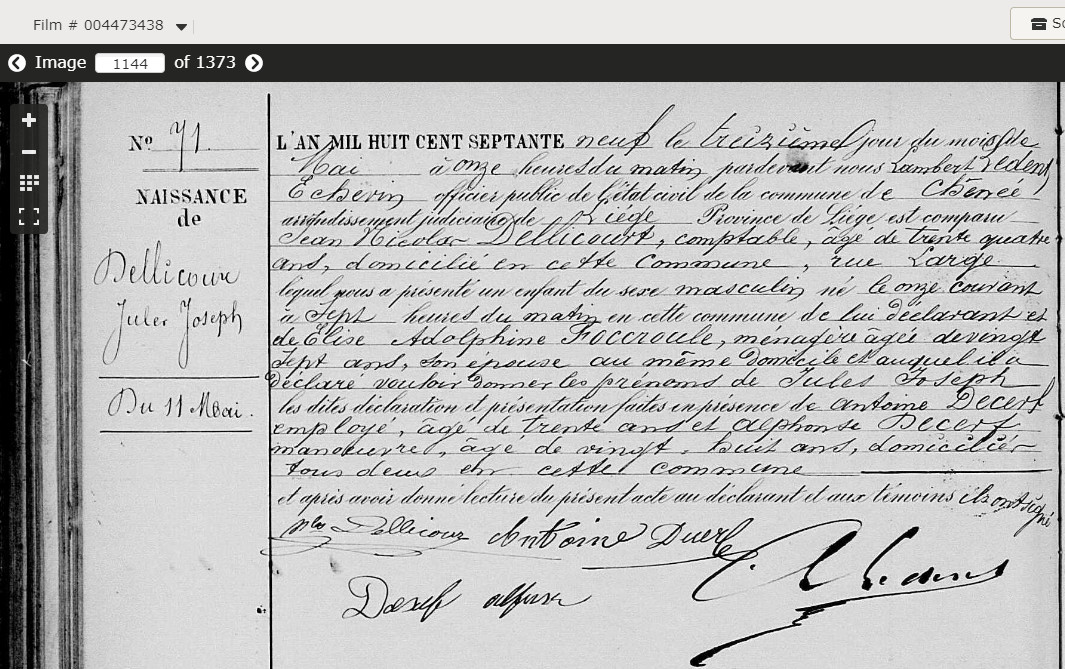 Film # 004473438
Image 1144 of 1373
Nº 71.
NAISSANCE
de
Dellicour
Jules Joseph
Du 11 Mai.
L'AN MIL HUIT CENT SEPTANTE neuf le treizième jour du mois de
Mai à onze heures du matin pardevant nous Lambert
Echevin officier public de l'état civil de la commune de Chênée
arrondissement judiciaire de Liége Province de Liége est comparu
Jean Nicolas Dellicourt, comptable, âgé de trente quatre
ans, domicilié en cette commune, rue Large
lequel nous a présenté un enfant du sexe masculin né le onze courant
à Sept heures du matin en cette commune de lui déclarant et
de Elise Adolphine Foccroule, ménagère âgée de vingt
sept ans, son épouse au même domicile et auquel il a
déclaré vouloir donner les prénoms de Jules Joseph
les dites déclaration et présentation faites en présence de Antoine Decerf
employé, âgé de trente ans et Alphonse Decerf
manoeuvre, âgé de vingt huit ans, domiciliés
tous deux en cette commune
et après avoir donné lecture du présent acte au déclarant et aux témoins ils ont signé
Nlas Dellicour Antoine Decerf
Decerf